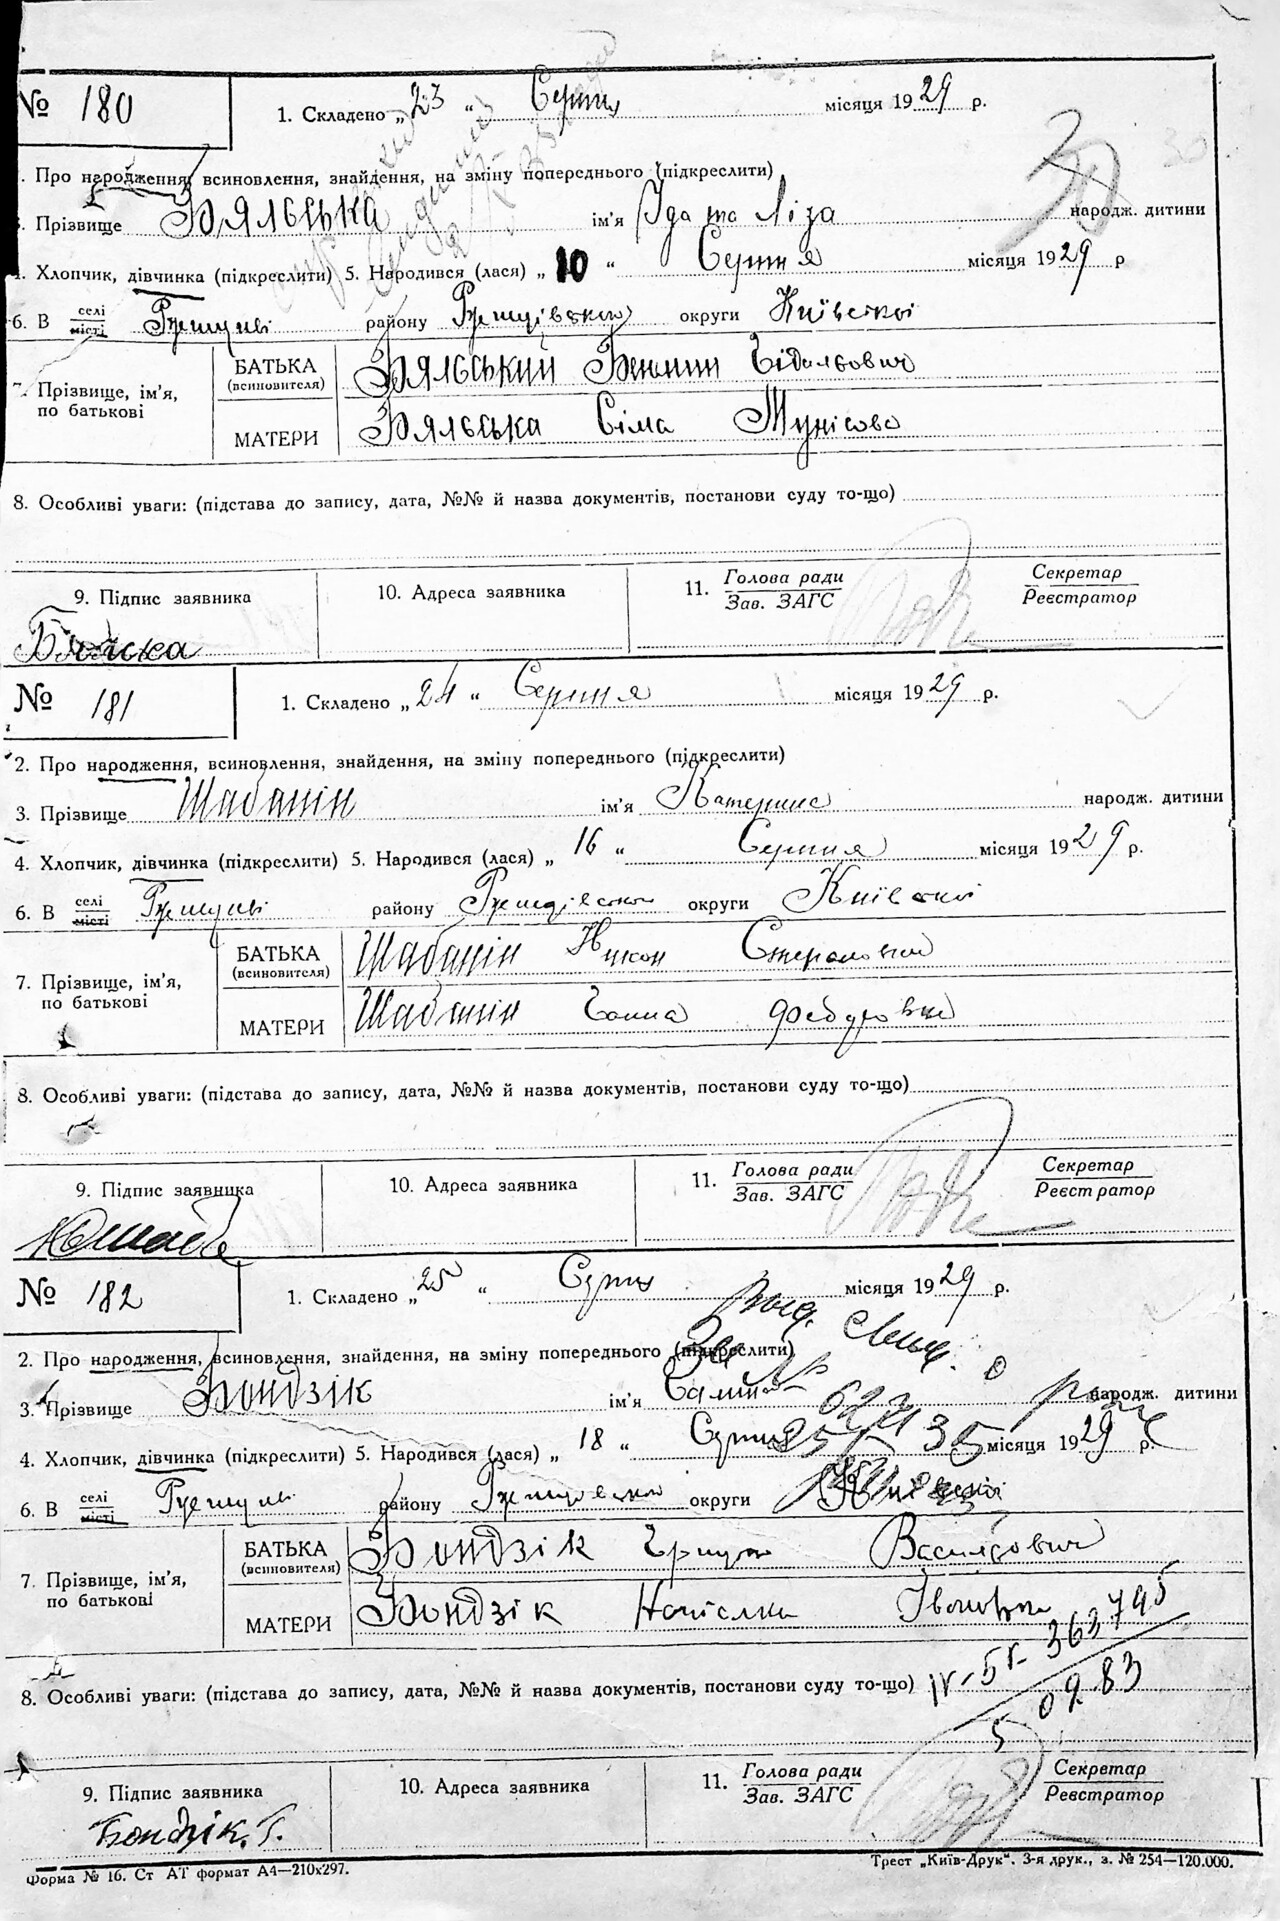 № 180
1. Складено „23“ Серпня місяця 1929 р.
30
30
. Про народження, всиновлення, знайдення, на зміну попереднього (підкреслити)
3. Прізвище Бяльська ім'я Їда та Ліза народж. дитини
4. Хлопчик, дівчинка (підкреслити) 5. Народився (лася) „10“ Серпня місяця 1929 р
6. В селі місті Ржищеві району Ржищівського округи Київської
7. Прізвище, ім'я, по батькові
БАТЬКА (всиновителя) Бяльський Бенюмин
МАТЕРИ Бяльська Сіма Мунісова
8. Особливі уваги: (підстава до запису, дата, №№ й назва документів, постанови суду то-що)
9. Підпис заявника
10. Адреса заявника
11. Голова ради Зав. ЗАГС
Секретар Реєстратор
Бяльска
№ 181
1. Складено „24“ Серпня місяця 1929 р.
2. Про народження, всиновлення, знайдення, на зміну попереднього (підкреслити)
3. Прізвище Шабанін ім'я Катерина народж. дитини
4. Хлопчик, дівчинка (підкреслити) 5. Народився (лася) „16“ Серпня місяця 1929 р.
6. В селі місті Ржищеві району Ржищівського округи Київської
7. Прізвище, ім'я, по батькові
БАТЬКА (всиновителя) Шабанін Никон
МАТЕРИ Шабанін Ганна Федоровна
8. Особливі уваги: (підстава до запису, дата, №№ й назва документів, постанови суду то-що)
9. Підпис заявника
10. Адреса заявника
11. Голова ради Зав. ЗАГС
Секретар Реєстратор
№ 182
1. Складено „25“ Серпня місяця 1929 р.
2. Про народження, всиновлення, знайдення, на зміну попереднього (підкреслити)
3. Прізвище Бондзік ім'я Галина народж. дитини
4. Хлопчик, дівчинка (підкреслити) 5. Народився (лася) „18“ Серпня місяця 1929 р.
6. В селі місті Ржищеві району Ржищівського округи Київської
7. Прізвище, ім'я, по батькові
БАТЬКА (всиновителя) Бондзік Грицько Васильович
МАТЕРИ Бондзік Наталка Івановна
8. Особливі уваги: (підстава до запису, дата, №№ й назва документів, постанови суду то-що) 363795
50283
9. Підпис заявника
10. Адреса заявника
11. Голова ради Зав. ЗАГС
Секретар Реєстратор
Бондзік. Г.
Форма № 16. Ст АТ формат А4—210х297.
Трест „Київ-Друк“. 3-я друк., з. № 254—120.000.